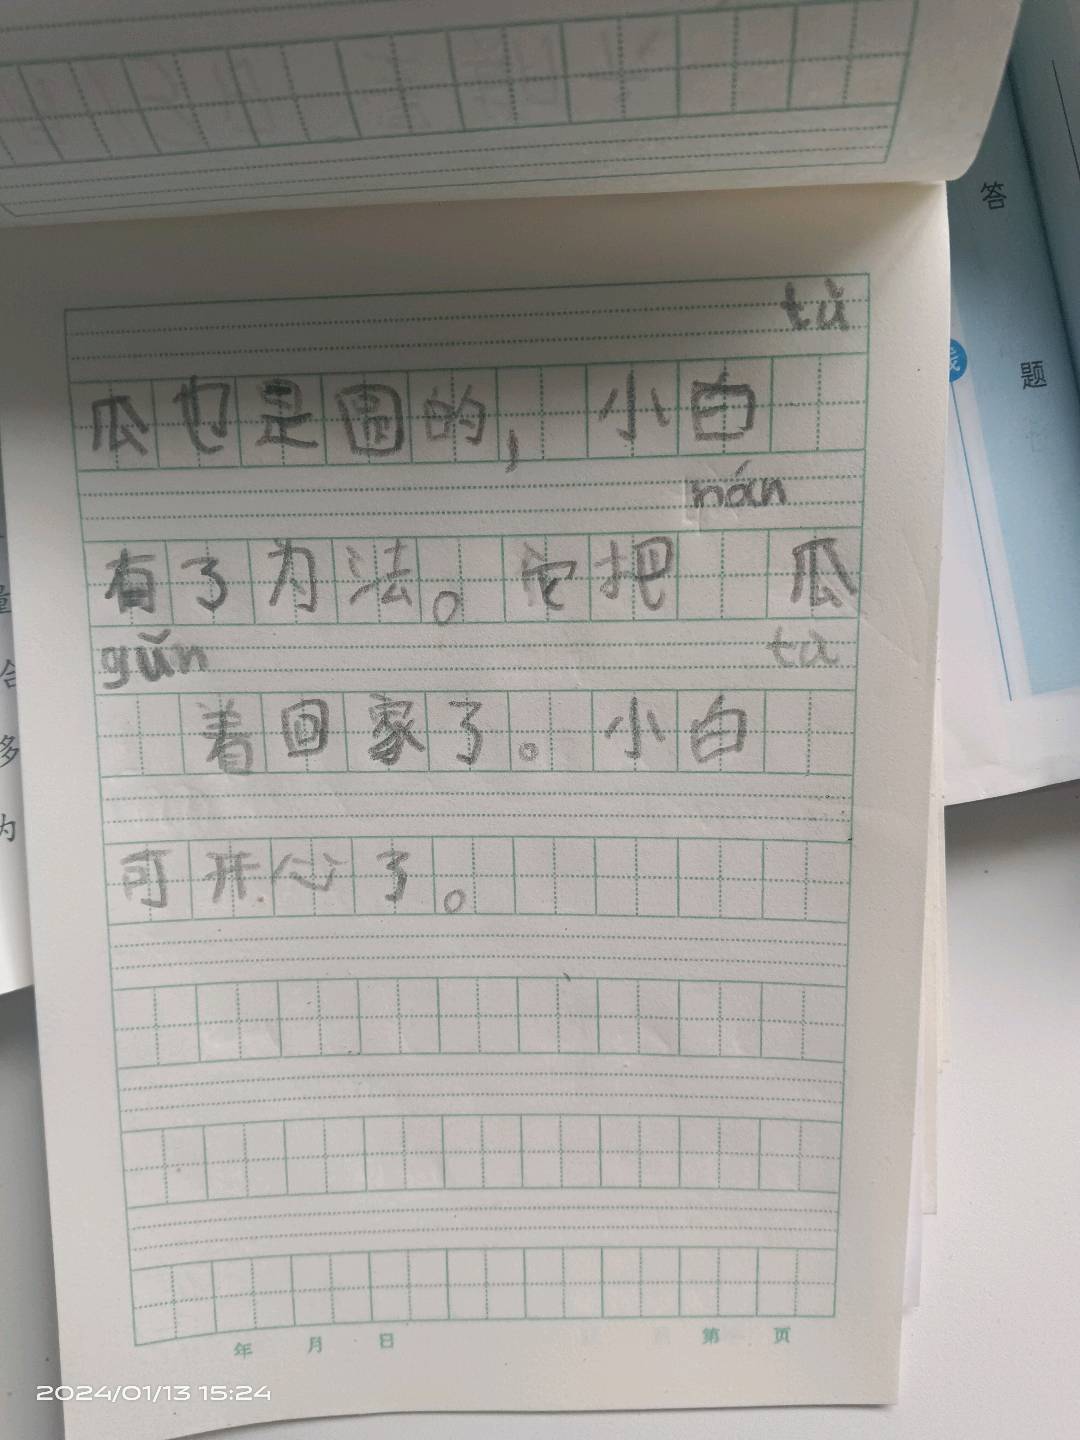 tù
瓜也是圆的，小白
nán
有了为法。它把 瓜
gǔn tù
着回家了。小白
可开心了。
年 月 日 第 页
答
题
量
合
多
为
2024/01/13 15:24